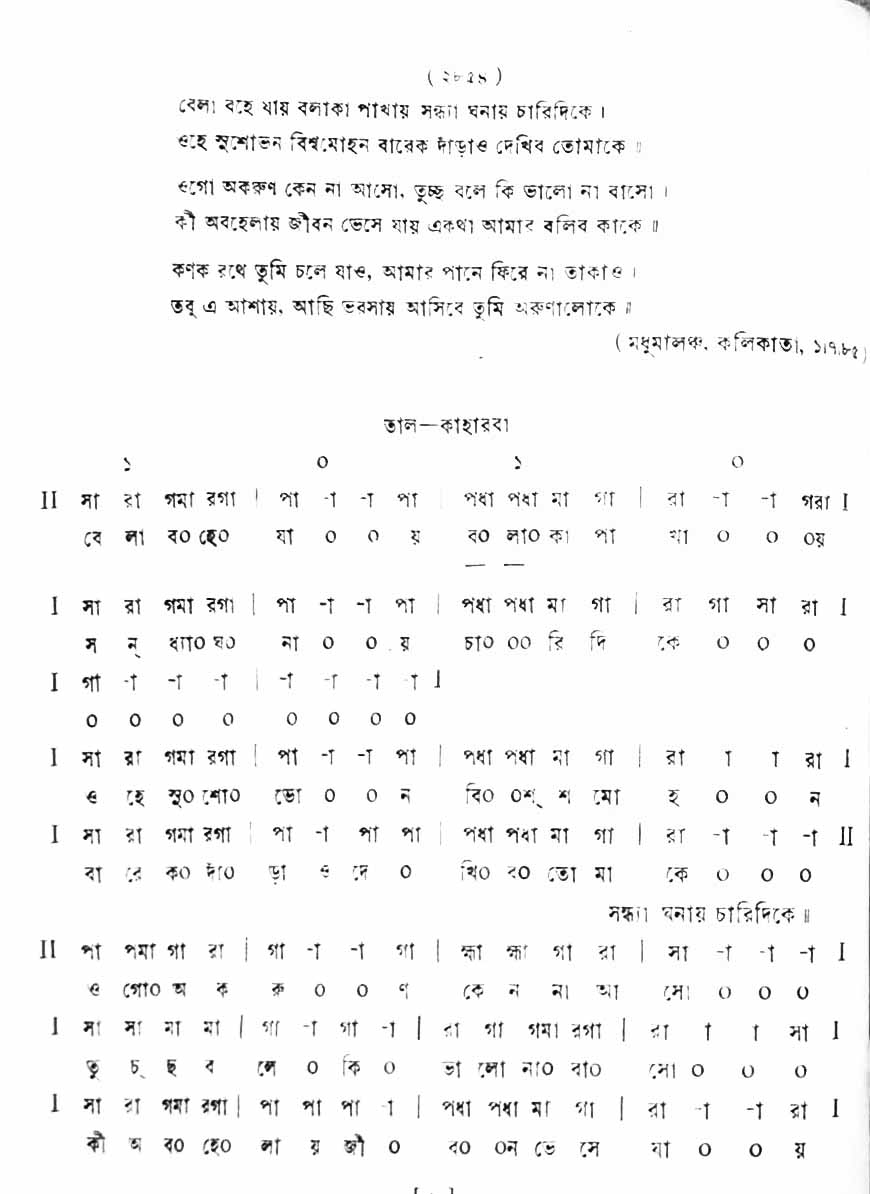 ( ২৮৫৪ )
বেলা বহে যায় বলাকা পাখায় সন্ধ্যা ঘনায় চারিদিকে ।
ওহে সুশোভন বিশ্বমোহন বারেক দাঁড়াও দেখিব তোমাকে ॥
ওগো অকরুণ কেন না আসো, তুচ্ছ বলে কি ভালো না বাসো ।
কী অবহেলায় জীবন ভেসে যায় একথা আমার বলিব কাকে ॥
কণক রথে তুমি চলে যাও, আমার পানে ফিরে না তাকাও ।
তবু এ আশায়, আছি ভরসায় আসিবে তুমি অরুণালোকে ॥
( মধুমালঞ্চ, কলিকাতা, ১।৭।৮৫)
তাল—কাহারবা
১ ০ ১ ০
II সা রা গমা রগা | পা -া -া পা | পধা পধা মা গা | রা -া -া গরা I
বে লা ব০ হে০ যা ০ ০ য় ব০ লা০ কা পা খা ০ ০ ০য়
I সা রা গমা রগা | পা -া -া পা | পধা পধা মা গা | রা গা সা রা I
স ন্ ধ্যা০ ঘ০ না ০ ০ য় চা০ ০০ রি দি কে ০ ০ ০
I গা -া -া -া | -া -া -া -া I
০ ০ ০ ০ ০ ০ ০ ০
I সা রা গমা রগা | পা -া -া পা | পধা পধা মা গা | রা া া রা I
ও হে সু০ শো০ ভো ০ ০ ন বি০ ০শ্ শ মো হ ০ ০ ন
I সা রা গমা রগা | পা -া পা পা | পধা পধা মা গা | রা -া -া -া II
বা রে ক০ দাঁ০ ড়া ও দে ০ খি০ ব০ তো মা কে ০ ০ ০
সন্ধ্যা ঘনায় চারিদিকে ॥
II পা পমা গা রা | গা -া -া গা | হ্মা হ্মা গা রা | সা -া -া -া I
ও গো০ অ ক রু ০ ০ ণ কে ন না আ সো ০ ০ ০
I সা সা মা মা | গা -া গা -া | রা গা গমা রগা | রা া া সা I
তু চ্ ছ ব লে ০ কি ০ ভা লো না০ বা০ সো ০ ০ ০
I সা রা গমা রগা | পা পা পা -া | পধা পধা মা গা | রা -া -া রা I
কী অ ব০ হে০ লা য় জী ০ ব০ ০ন ভে সে যা ০ ০ য়